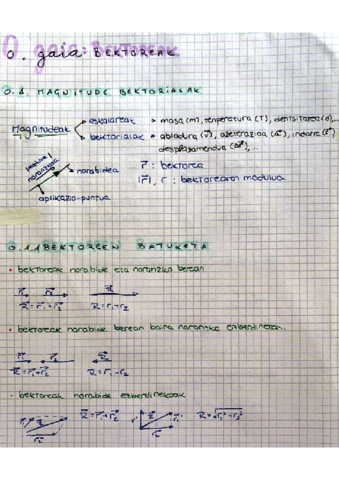 0. gaia: BEKTOREAK
0.1. MAGNITUDE BEKTORIALAK
Magnitudeak
eskalareak → masa (m), tenperatura (T), dentsitatea (d),...
bektorialak → abiadura (v⃗), azelerazioa (a⃗), indarra (F⃗),
desplazamendua (Δr⃗),...
modulua
noranzkoa
norabidea
aplikazio-puntua
r⃗ : bektorea
|r⃗|, r : bektorearen modulua
0.1.1 BEKTOREEN BATUKETA
• bektoreak norabide eta noranzko berean
r⃗₁ r⃗₂ R⃗
R⃗ = r⃗₁ + r⃗₂ R = r₁ + r₂
• bektoreak norabide berean baina noranzko ezberdinetan.
r⃗₁ r⃗₂ R⃗
R⃗ = r⃗₁ + r⃗₂ R = r₁ - r₂
- bektoreak norabide ezberdinekoak
r⃗₁ R⃗ r⃗₂ R⃗ = r⃗₁ + r⃗₂ r⃗₁ R⃗ r⃗₂ R = √r₁² + r₂²